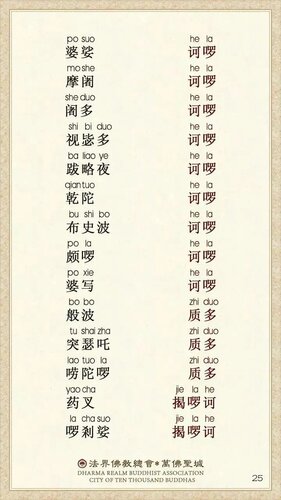 po suo he la
婆娑 诃啰
mo she he la
摩阇 诃啰
she duo he la
阇多 诃啰
shi bi duo he la
视毖多 诃啰
ba liao ye he la
跋略夜 诃啰
qian tuo he la
乾陀 诃啰
bu shi bo he la
布史波 诃啰
po la he la
颇啰 诃啰
po xie he la
婆写 诃啰
bo bo zhi duo
般波 质多
tu shai zha zhi duo
突瑟吒 质多
lao tuo la zhi duo
唠陀啰 质多
yao cha jie la he
药叉 揭啰诃
la cha suo jie la he
啰刹娑 揭啰诃
法界佛教總會 萬佛聖城
DHARMA REALM BUDDHIST ASSOCIATION
CITY OF TEN THOUSAND BUDDHAS
25